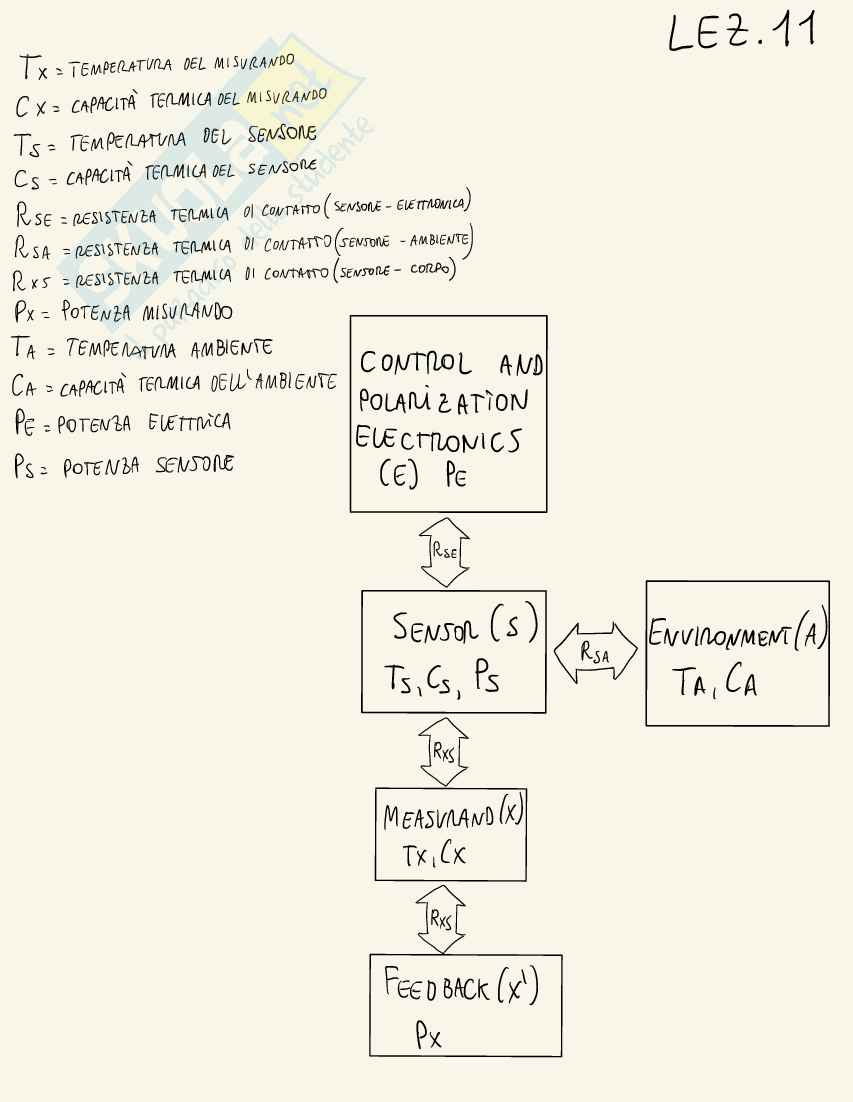 LEZ.11
TX = TEMPERATURA DEL MISURANDO
CX = CAPACITÀ TERMICA DEL MISURANDO
TS = TEMPERATURA DEL SENSORE
CS = CAPACITÀ TERMICA DEL SENSORE
RSE = RESISTENZA TERMICA DI CONTATTO (SENSORE - ELETTRONICA)
RSA = RESISTENZA TERMICA DI CONTATTO (SENSORE - AMBIENTE)
RXS = RESISTENZA TERMICA DI CONTATTO (SENSORE - CORPO)
PX = POTENZA MISURANDO
TA = TEMPERATURA AMBIENTE
CA = CAPACITÀ TERMICA DELL'AMBIENTE
PE = POTENZA ELETTRICA
PS = POTENZA SENSORE
CONTROL AND
POLARIZATION
ELECTRONICS
(E) PE
RSE
SENSOR (S)
TS, CS, PS
RSA
ENVIRONMENT (A)
TA, CA
RXS
MEASURAND (X)
TX, CX
RXS
FEEDBACK (X')
PX
skuola.net
il paradiso dello studente